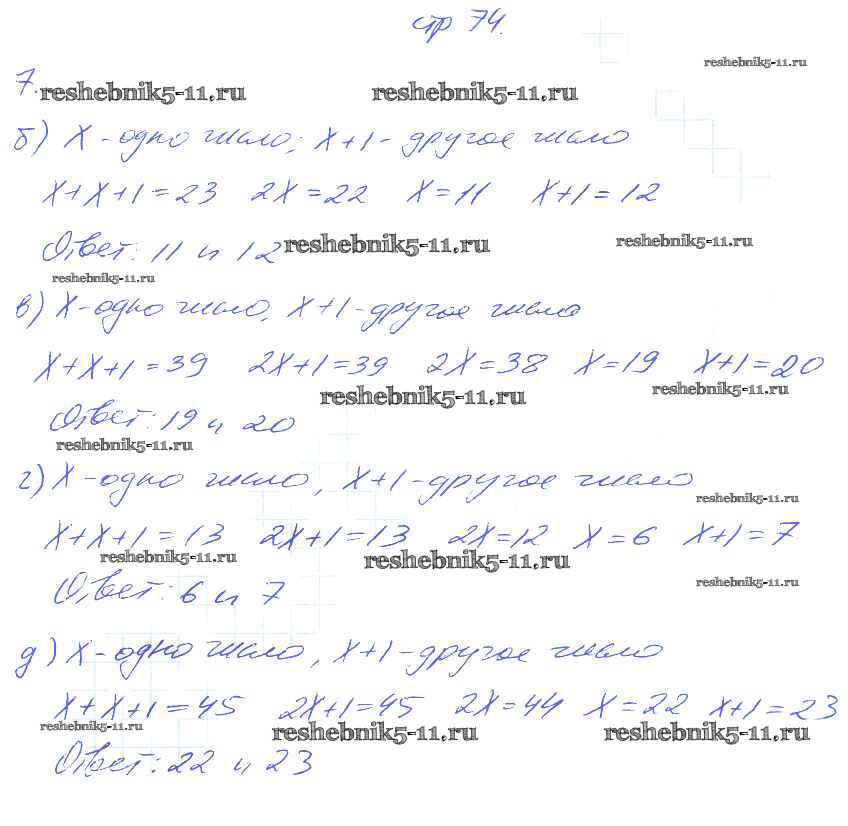 стр 74.
reshebnik5-11.ru
7. reshebnik5-11.ru reshebnik5-11.ru
б) x - одно число; x+1 - другое число
x+x+1=23 2x=22 x=11 x+1=12
Ответ: 11 и 12 reshebnik5-11.ru reshebnik5-11.ru
reshebnik5-11.ru
в) x - одно число, x+1 - другое число
x+x+1=39 2x+1=39 2x=38 x=19 x+1=20
reshebnik5-11.ru reshebnik5-11.ru
Ответ: 19 и 20
reshebnik5-11.ru
г) x - одно число, x+1 - другое число
reshebnik5-11.ru
x+x+1=13 2x+1=13 2x=12 x=6 x+1=7
reshebnik5-11.ru reshebnik5-11.ru
Ответ: 6 и 7 reshebnik5-11.ru
д) x - одно число, x+1 - другое число
x+x+1=45 2x+1=45 2x=44 x=22 x+1=23
reshebnik5-11.ru reshebnik5-11.ru reshebnik5-11.ru
Ответ: 22 и 23